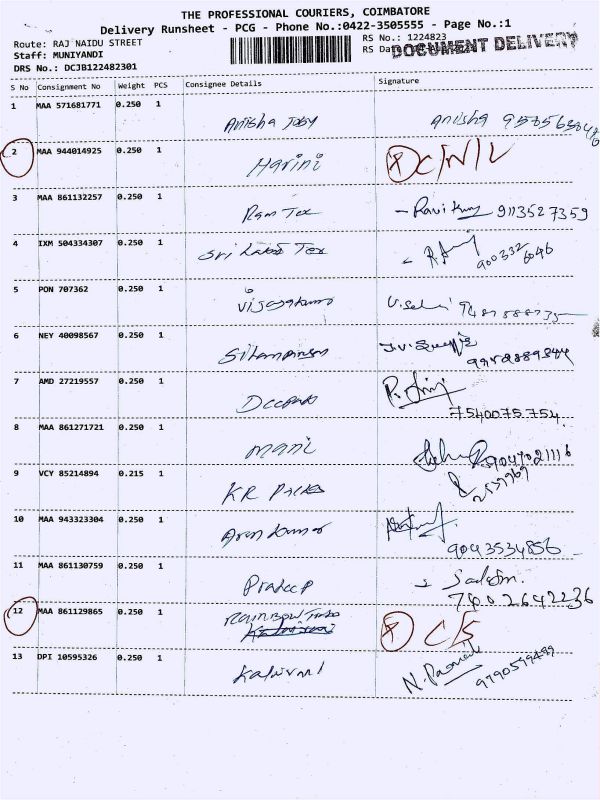 THE PROFESSIONAL COURIERS, COIMBATORE
Delivery Runsheet - PCG - Phone No.:0422-3505555 - Page No.:1
Route: RAJ NAIDU STREET
RS No.: 1224823
Staff: MUNIYANDI
RS Da
DOCUMENT DELIVERY
DRS No.: DCJB122482301
S No Consignment No Weight PCS Consignee Details Signature
1 MAA 571681771 0.250 1
Anisha Anisha
2 MAA 944014925 0.250 1
Harini
3 MAA 861132257 0.250 1
Ram Tex Ravi Kumar 9113527359
4 IXM 504334307 0.250 1
Sri Tex
5 PON 707362 0.250 1
Vijayakumar
6 NEY 40098567 0.250 1
7 AMD 27219557 0.250 1
7540075754
8 MAA 861271721 0.250 1
mani 9047021116
9 VCY 85214894 0.215 1
KR
10 MAA 943323304 0.250 1
Arun Kumar 9043534856
11 MAA 861130759 0.250 1
Pradeep
7402642236
12 MAA 861129865 0.250 1
Rainbow C/S
13 DPI 10595326 0.250 1